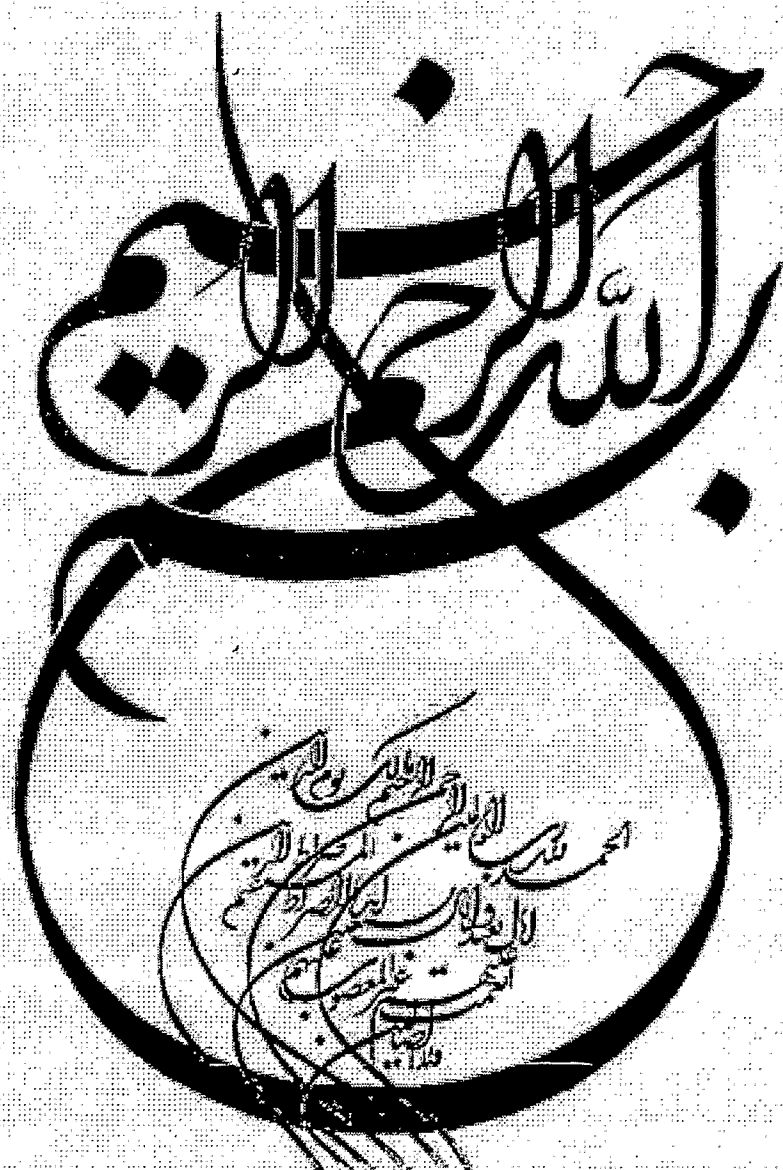 بسم الله الرحمن الرحيم
الحمد لله رب العالمين
الرحمن الرحيم مالك يوم الدين
إياك نعبد وإياك نستعين
اهدنا الصراط المستقيم صراط الذين
أنعمت عليهم
غير المغضوب عليهم
ولا الضالين